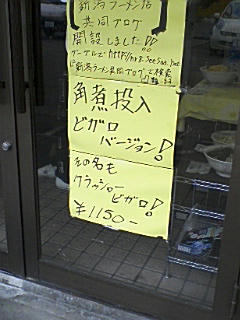 新潟ラーメン店
共同ブログ
開設しました!!
グーグルで http://
"新潟ラーメン共同ブログ"で検索
角煮投入
ビガロ
バージョン!
その名も
クラッシャー
ビガロ!
¥1150-